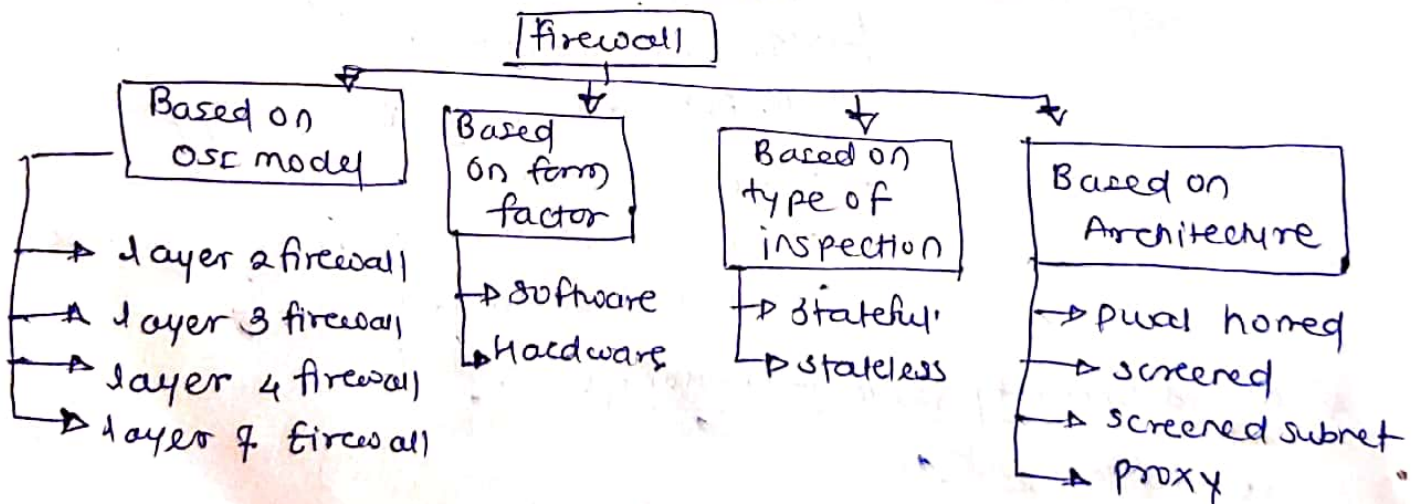 firewall
Based on
OSI model
layer 2 firewall
layer 3 firewall
layer 4 firewall
layer 7 firewall
Based
on form
factor
software
Hardware
Based on
type of
inspection
stateful
stateless
Based on
Architecture
Dual homed
screened
screened subnet
proxy